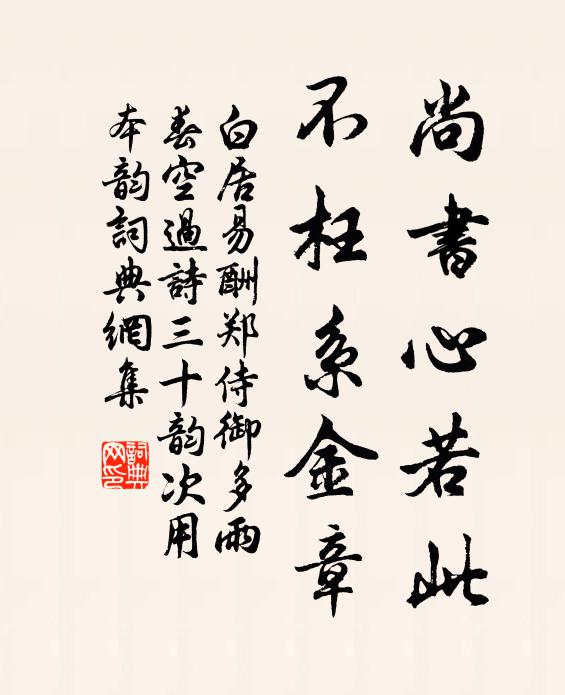 尚書心若此
不枉系金章
白居易酬郑侍御多雨
春空過詩三十韵次用
本韵詞典網集
詞典
网印